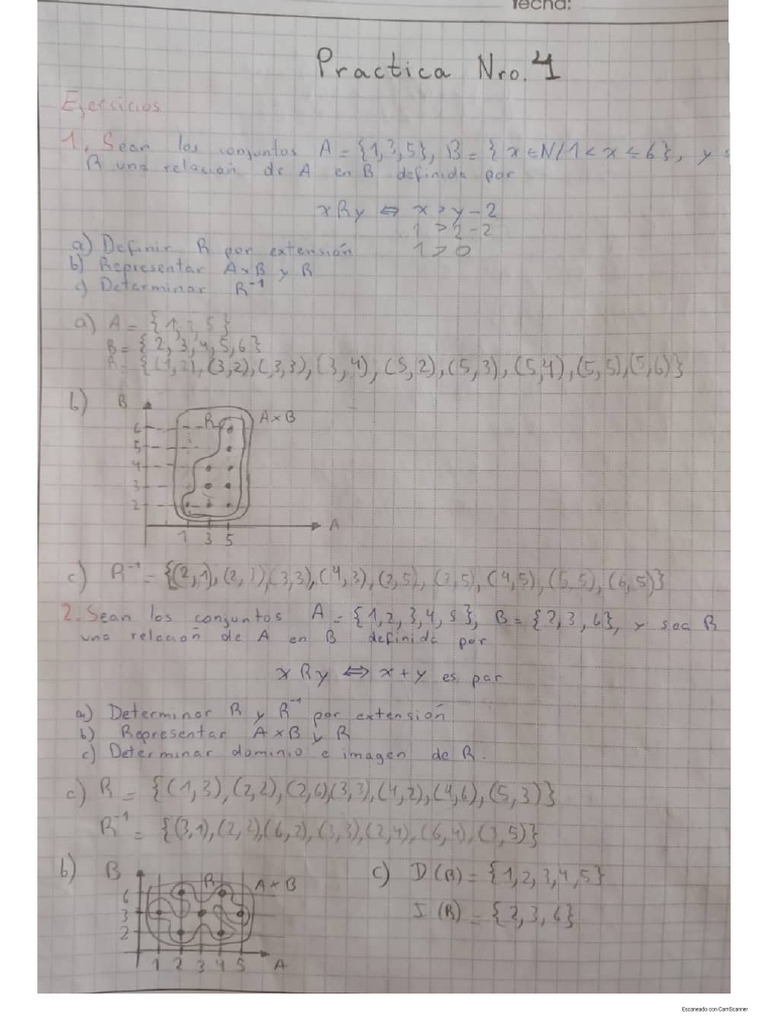 fecha:
Practica Nro. 4
Ejercicios
1. Sean los conjuntos A = {1,3,5}, B = {x∈N/1<x≤6}, y s
R una relación de A en B definida por
xRy ⇔ x > y-2
1 > 2-2
a) Definir R por extensión 1 > 0
b) Representar A×B y R
c) Determinar R⁻¹
a) A = {1,3,5}
B = {2,3,4,5,6}
R = {(1,2),(3,2),(3,3),(3,4),(5,2),(5,3),(5,4),(5,5),(5,6)}
b) B
6 R A×B
5
4
3
2
A
1 3 5
c) R⁻¹ = {(2,1),(2,3)(3,3),(4,3),(2,5),(3,5),(4,5),(5,5),(6,5)}
2. Sean los conjuntos A = {1,2,3,4,5}, B = {2,3,6}, y sea R
una relación de A en B definida por
xRy ⇔ x+y es par
a) Determinar R y R⁻¹ por extensión
b) Representar A×B y R
c) Determinar dominio e imagen de R.
a) R = {(1,3),(2,2),(2,6)(3,3),(4,2),(4,6),(5,3)}
R⁻¹ = {(3,1),(2,2),(6,2),(3,3),(2,4),(6,4),(3,5)}
b) B c) D(R) = {1,2,3,4,5}
6 R A×B
3 I(R) = {2,3,6}
2
1 2 3 4 5 A
Escaneado con CamScanner